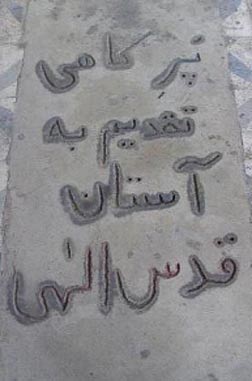 نپر کامی
تقدیم به
آستان
قدس الهی